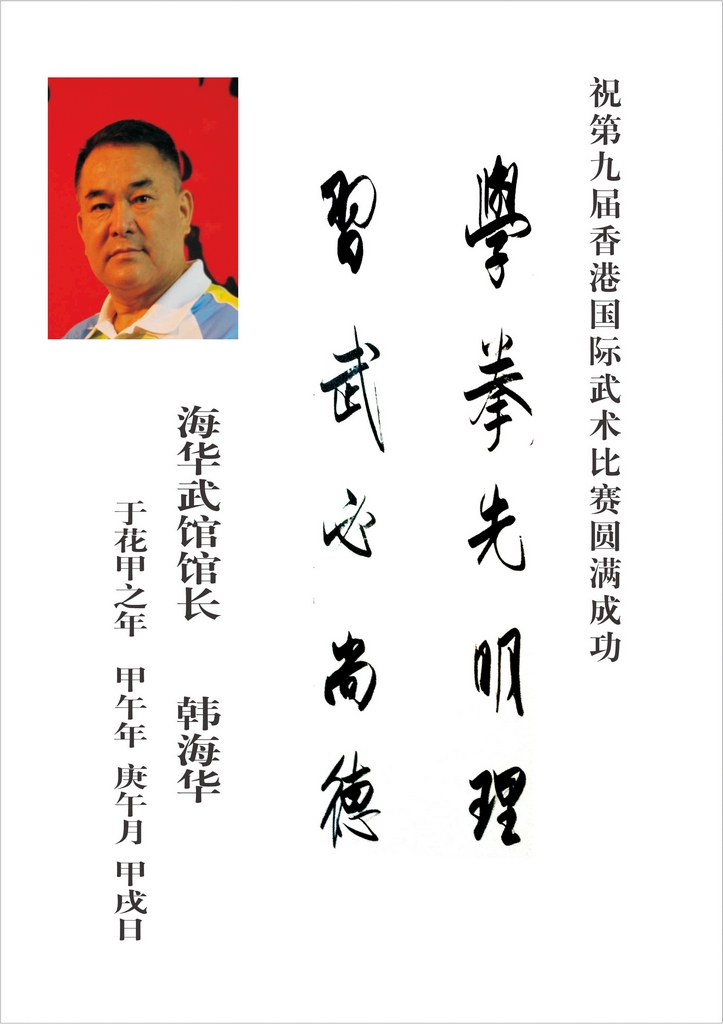 祝第九届香港国际武术比赛圆满成功
學拳先明理
習武必尚德
海华武馆馆长 韩海华
于花甲之年 甲午年 庚午月 甲戌日